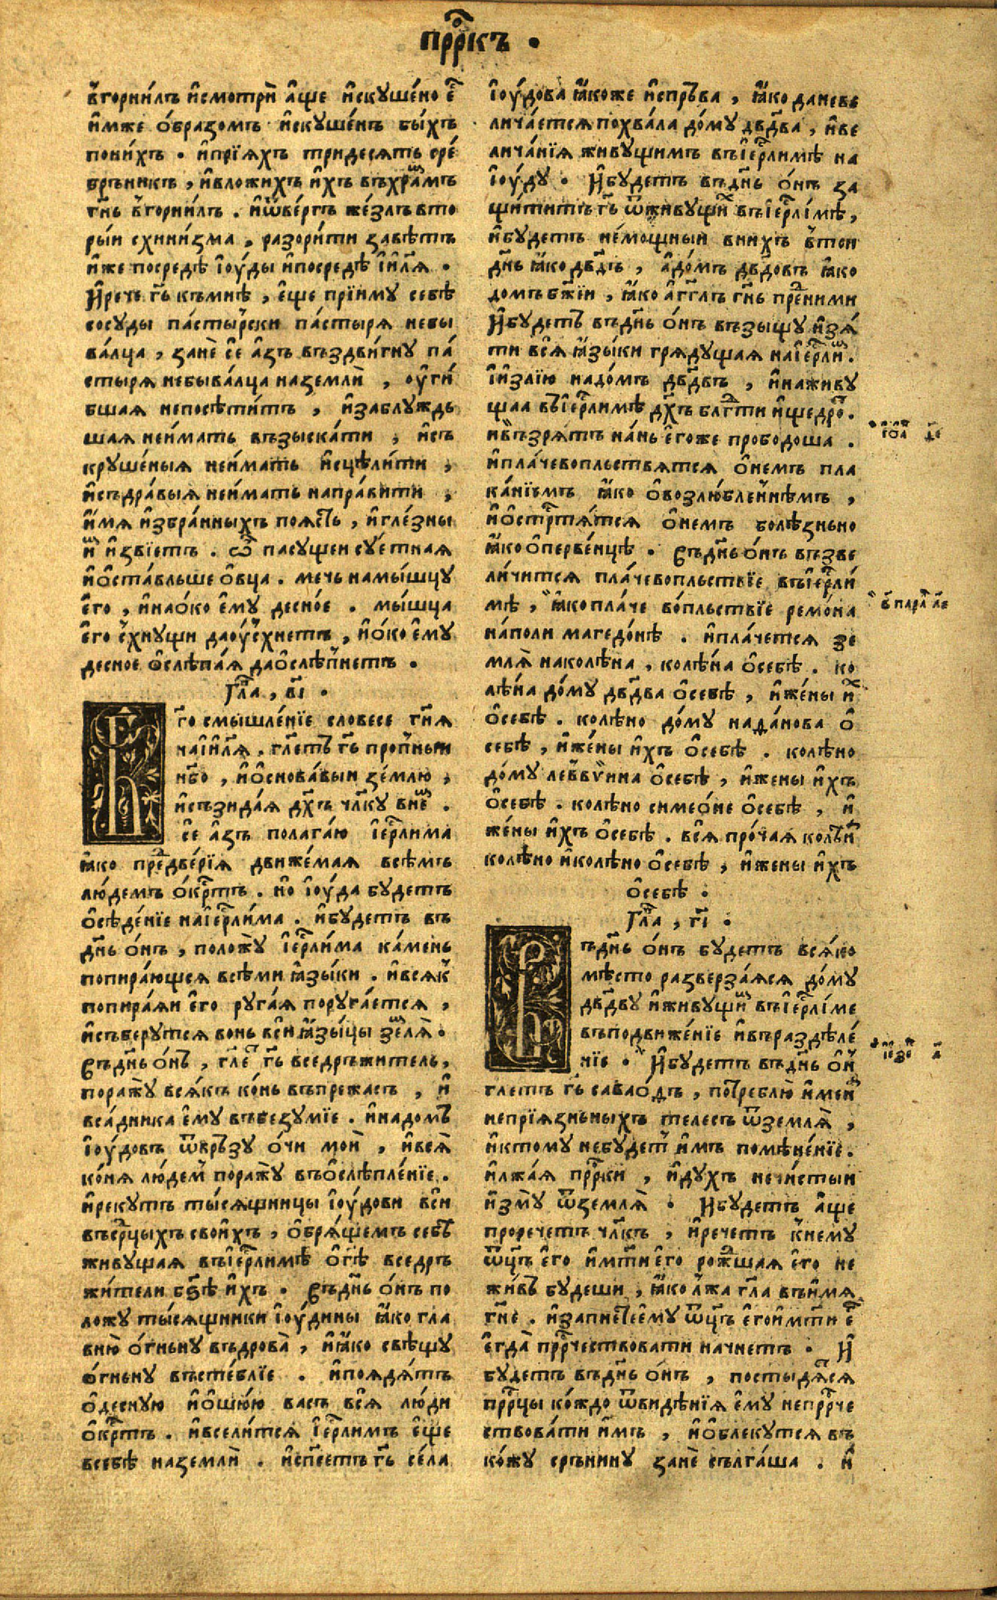 прⷪ҇рⷪ҇къ .
в̾горнилъ исмотрѝ а҆ще искушено є҆
и҆мже ѻ҆бразомъ искушенъ бы́хъ
пони́хъ . ипрїѧхъ тридесѧть сре́
бръникъ , ивложихъ и҆хъ въхра́мъ
гн҃ь в̾горнилъ . иѿве́ргъ же́злъ вто
рыи схинизма , разори́ти завѣтъ
и҆же посредѣ і҆ю́ды ипосредѣ і҆и҃лѧ .
И҆рече гь҃ къмнѣ , є҆ще прїиму себѣ
сосуды па́стырски па́стырѧ невы
ва́лца , занѐ се а҆зъ въздви́гну па́
стырѧ небыва́лца наземлѝ , оу҆ги́
бшаѧ непосѣти́тъ , изаблуждь
шаѧ неи́мать възыска́ти , исъ
круше́ныѧ неи́мать исцѣли́ти ,
исъдра́выѧ неи́мать напра́вити ,
и҆мѧ избра́нныхъ поѧсть , игле́зны
и҆ⷯ извїетъ . ѽ пасущеи суетнаѧ
иѡ҆ста́вльше ѻ҆вца . мечь намы́шцу
є҆го̀ , инао́ко є҆му̀ десно́е . мы́шца
є҆го̀ схнущи даоу҆схнетъ , ио́ко є҆му̀
десное ѡ҆слѣпа́ѧ даѡ҆слѣпнетъ .
Гла҃ , в҃і .
Е҆
го смышле́нїе словесе гн҃ѧ
наі҆и҃лѧ . гл҃етъ гь҃ пропны́и
нб҃о , иѡ҆снова́выи зе́млю ,
исъзида́ѧ дх҃ъ чл҃ку вне́ⷨ .
се а҆зъ полага́ю і҆ерⷭ҇лима
ꙗ҆ко пре́дверїѧ дви́жемаѧ всѣ́мъ
лю́демъ ѻ҆крⷭ҇тъ . но і҆ю́да будетъ
ѡ҆сѣде́нїе наі҆ерⷭ҇ли́ма . ибудетъ въ
дн҃ь о́нъ , положу̀ і҆ерⷭ҇ли́ма ка́мень
попира́ющсѧ всѣ́ми ꙗ҆зы́ки . ивсѧк̾
попира́ѧи є҆го̀ ругаѧ поруга́етсѧ ,
исъверутсѧ вонь вси ꙗ҆зы́цы зе́млѧ̀ .
Въдн҃ь о́нъ , гл҃етъ гь҃ вседръжитель ,
поражу̀ всѧкъ ко́нь въпрежасъ , и
всадника є҆му̀ въбезумїе . инадо́мъ
і҆ю́довъ ѿкры́зу о҆чи мои̑ , ивсѧ̀
ко́нѧ лю́демъ поражу̀ въѡ҆слѣпле́нїе .
ирекутъ ты́сѧщницы і҆ю́дови вси
въсерⷣцыхъ свои́хъ , ѡ҆брѧщемъ себѣ
живущаѧ въі҆ерⷭ҇лимѣ ѻ҆ гь҃ѣ вседръ
жители бз҃ѣ и҆хъ . Въдн҃ь о́нъ по
ложу ты́сѧщники і҆ю́дины ꙗ҆ко гла
вню̀ о҆гньну въдрова̀ , иꙗ҆ко свѣщу
о҆гньну въстеблїе . ипоѧдѧ́тъ
ѡ҆десную иѡ҆шюю васъ всѧ̀ лю́ди
ѻ҆крⷭ҇тъ . ивсели́тсѧ і҆ерⷭ҇лимъ є҆ще
всебѣ наземлѝ . испсе́тъ гь҃ се́ла
і҆ю́дова ꙗ҆коже испръва , ꙗ҆ко даневе
лича́етсѧ похва́ла до́му дв҃два , иве
лича́нїѧ живущимъ въі҆ерⷭ҇лимѣ на
і҆ю́ду . И҆будетъ въдн҃ь о́нъ за
щи́титъ гь҃ ѿживущиⷯ въі҆ерⷭ҇лимѣ ,
ибудетъ немощныи вни́хъ в̾тои
дн҃ь ꙗ҆ко дв҃дъ , адо́мъ дв҃довъ ꙗ҆ко
домъ бж҃їи , ꙗ҆ко а҆гг҃лъ гн҃ь преⷣними
И҆будетъ въдн҃ь о́нъ възыщу изѧ́
ти всѧ̀ ꙗ҆зы́ки грѧдущаѧ наі҆ерⷭ҇лиⷨ .
і҆излїю надо́мъ дв҃двъ , инаживу
щаа въі҆ерⷭ҇лимѣ дх҃ъ блгⷣти ищедро́ⷮ .
ивъзрѧтъ на́нь є҆гоже прободоша .
ипла́чевопльствѧтсѧ ѻ҆немъ пла
ка́нїемъ ꙗ҆ко ѻ҆возлю́бленнѣмъ ,
иѡ҆стрⷭ҇тѧ́тсѧ ѻ҆немъ болѣзньно
ꙗ҆ко ѻ҆первенцѣ . Въдн҃ь о́нъ възве
ли́читсѧ пла́чевопльствїе въі҆ерⷭ҇ли́
мѣ , ꙗ҆копла́че во́пльствїе ремо́на
напо́ли магедо́нѣ . ипла́четсѧ зе
млѧ̀ наколѣна , колѣ́на ѡ҆себѣ . ко
лѣ́на до́му дв҃два ѡ҆себѣ , иже́ны и҆ⷯ
ѡ҆себѣ . колѣ́но до́му наѳа́нова ѡ҆
себѣ , иже́ны и҆хъ ѡ҆себѣ . колѣ́но
до́му леввѵина ѡ҆себѣ , иже́ны и҆хъ
ѡ҆себѣ . колѣ́но симео́не ѡ҆себѣ , и
же́ны и҆хъ ѡ҆себѣ . всѧ̀ про́чаѧ колѣна
колѣ́но иколѣ́но ѡ҆себѣ , иже́ны и҆хъ
ѡ҆себѣ .
Гла҃ , г҃і .
В
ъдн҃ь о́нъ будетъ всѧ́ко
мѣ́сто разверза́ѧсѧ до́му
дв҃дву иживущиⷨ въі҆ерⷭ҇ли́ме
въподвиже́нїе ивъраздѣле́
нїе . И҆будетъ въдн҃ь о́нъ
глетъ гь҃ савао́ѳъ , потреблю̀ имена
непрїѧзньныхъ телесъ ѿземлѧ̀ ,
иктому небудет̾ и҆мъ помѣне́нїе .
илжа́ѧ прⷪ҇рки , идухъ нечи́стыи
изму̀ ѿземлѧ̀ . И҆будетъ а҆ще
проречетъ чл҃къ , иречетъ к̾нему
ѿц҃ъ є҆го̀ имт҃и є҆го̀ рождшаѧ є҆го̀ не
жи́въ будеши , ꙗ҆ко лжа гл҃а въи́мѧ
гн҃е . изапнетъєму̀ ѿц҃ъ є҆гоимт҃и є҆гѡ
є҆гда̀ прⷪ҇рчествовати начнетъ . И҆
будетъ въдн҃ь о́нъ , постыдѧтсѧ
прⷪ҇рцы ко́ждо ѿвидѣ́нїѧ є҆му̀ непрⷪ҇рче
ствова́ти и҆мъ , иѡ҆блекутсѧ въ
ко́жу сръни́ну занѐ сълга́ша . и